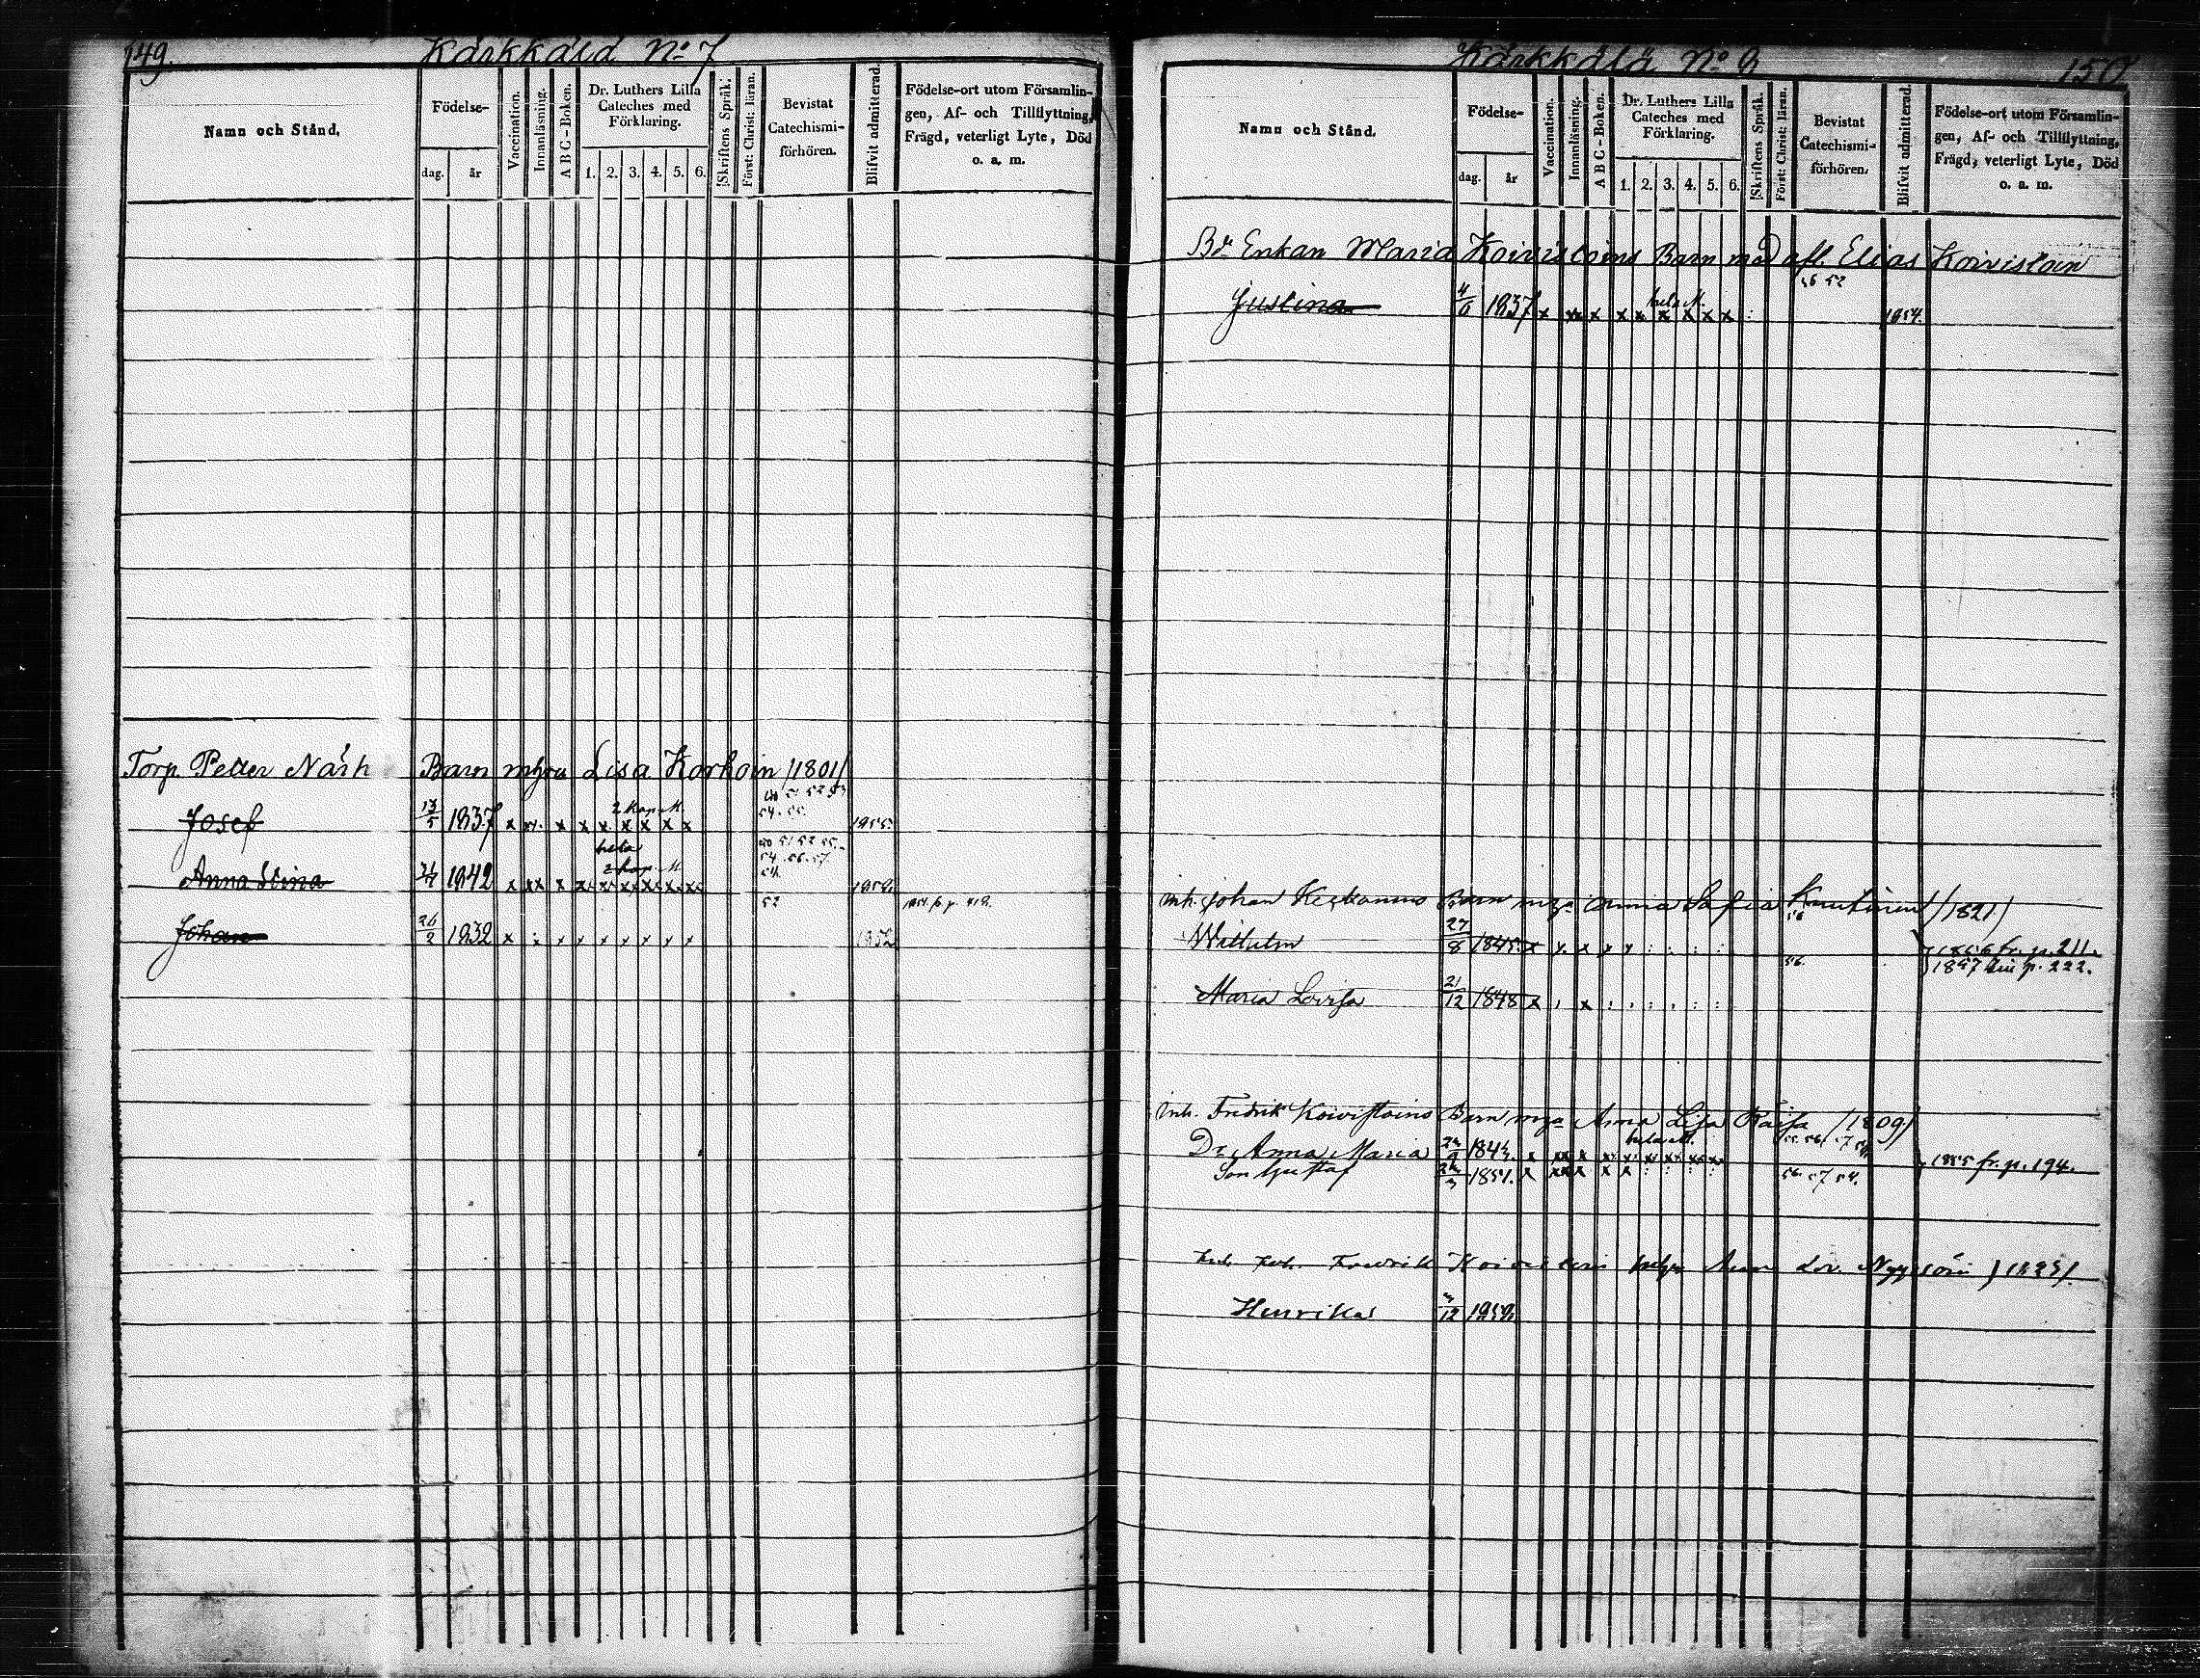 149.
Kärkkälä No 7
Namn och Stånd.
Födelse-
dag.
år
Vaccination.
Innanläsning.
A B C - Boken.
Dr. Luthers Lilla
Cateches med
Förklaring.
1. 2. 3. 4. 5. 6.
Skriftens Språk:
Först: Christ: läran.
Bevistat
Catechismi-
förhören.
Blifvit admitterad.
Födelse-ort utom Församlin-
gen, Af- och Tillflyttning,
Frägd, veterligt Lyte, Död
o. a. m.
Torp. Petter Närh Barn Lisa Korhoin /1801/
Josef 13/5 1837 x x x x x x x x 1855.
54. 55.
hela
Anna Stina 1842 x xx x x x x x x x 1858.
54. 56. 57.
52
Johan 26/2 1832 x x x x x x x x 1852
Kärkkälä No 8
150
Namn och Stånd.
Födelse-
dag.
år
Vaccination.
Innanläsning.
A B C - Boken.
Dr. Luthers Lilla
Cateches med
Förklaring.
1. 2. 3. 4. 5. 6.
Skriftens Språk.
Först: Christ: läran.
Bevistat
Catechismi-
förhören.
Blifvit admitterad.
Födelse-ort utom Församlin-
gen, Af- och Tillflyttning,
Frägd, veterligt Lyte, Död
o. a. m.
Enkan Maria Koivistoins Barn med afl. Elias Koivistoin
Justina 4/6 1837 x x x x x x x x x 1854.
inh. Johan Barn Anna Sofia Knutinen /1821/
56
Wilhelm 27/8 1845 x x x x x 1856 fr. p. 211.
56. 1857 p. 222.
Maria Lovisa 21/12 1848 x x
inh. Fredrik Koivistoins Barn Anna Lisa /1809/
Dr Anna Maria 1843. x xx x x x x x x x 1855 fr. p. 194.
Son Gustaf 1851. x xx x x x 56. 57
Fredrik Anna Lov.
Henrika 12